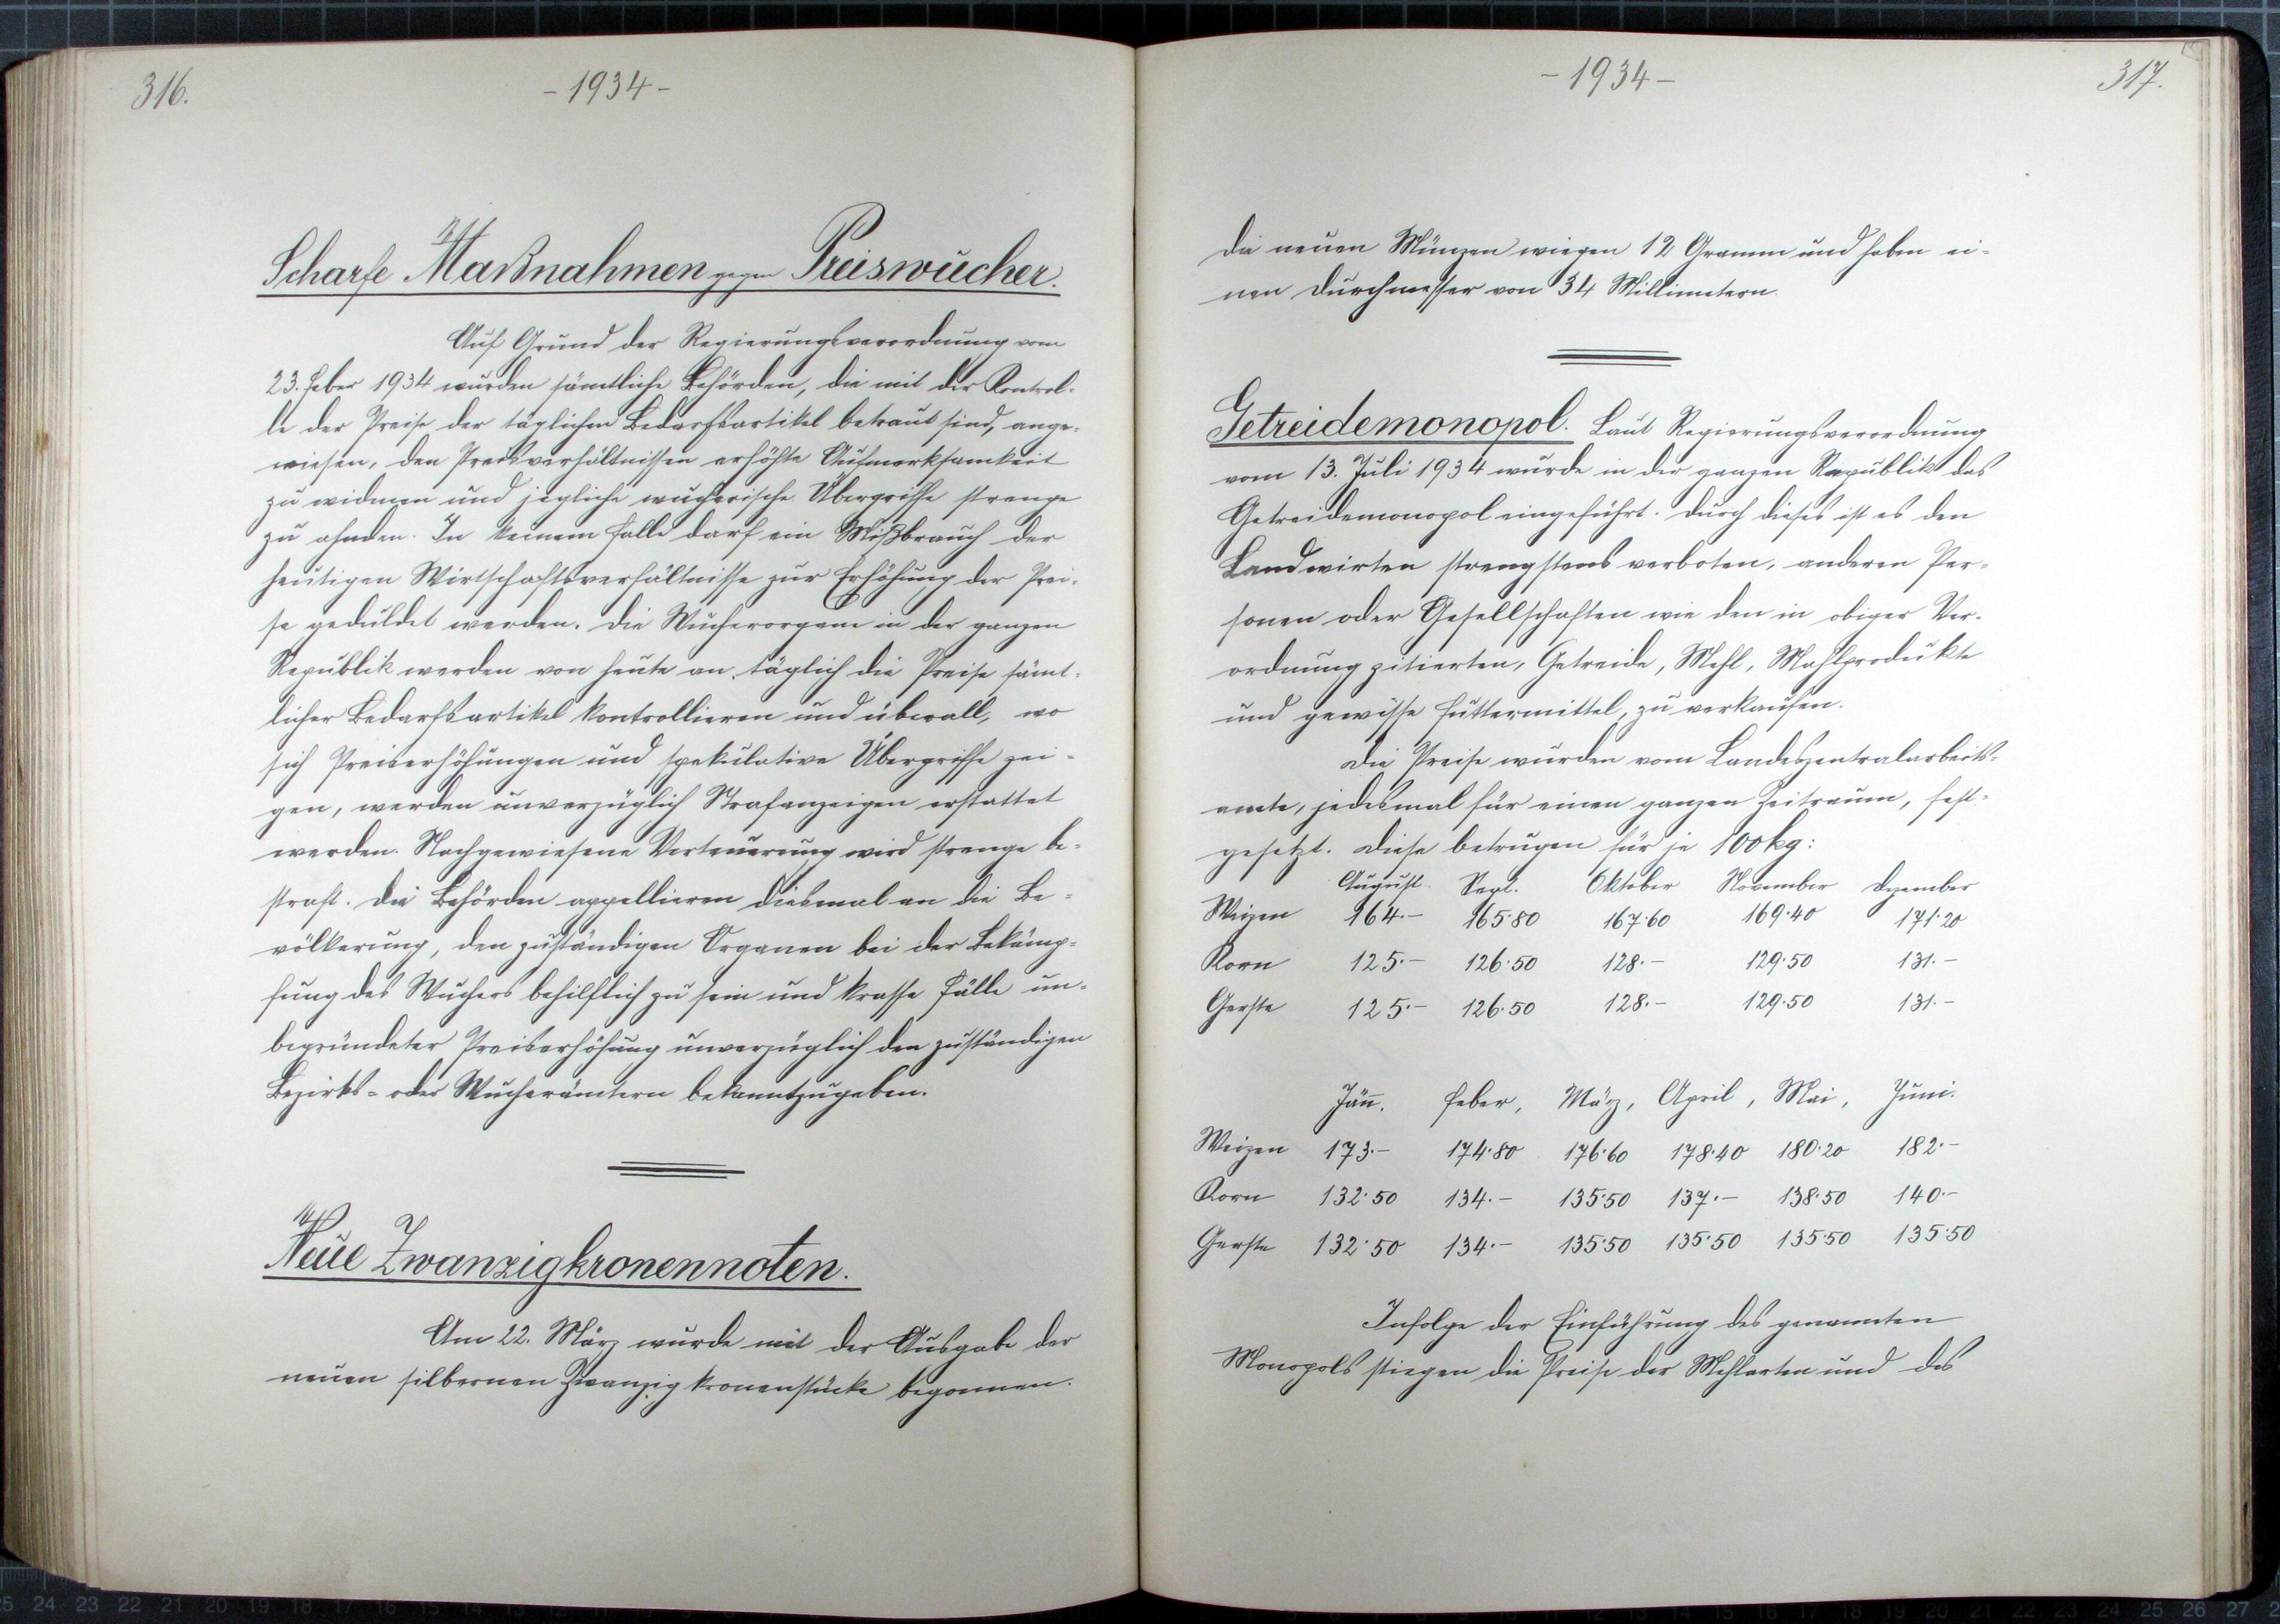 316.
- 1934 -
Scharfe Maßnahmen gegen Preiswucher.
Auf Grund der Regierungsverordnung vom
23. Feber 1934 wurden sämtliche Behörden, die mit der Kontrol-
le der Preise der täglichen Bedarfsartikel betraut sind, ange-
wiesen, den Preisverhältnissen erhöhte Aufmerksamkeit
zu widmen und jegliche wucherische Übergriffe strenge
zu ahnden. In keinem Falle darf ein Mißbrauch der
heutigen Wirtschaftsverhältnisse zur Erhöhung der Prei-
se geduldet werden. Die Wucherorgane in der ganzen
Republik werden von heute an täglich die Preise sämt-
licher Bedarfsartikel kontrollieren und überall, wo
sich Preiserhöhungen und spekulative Übergriffe zei-
gen, werden unverzüglich Strafanzeigen erstattet
werden. Nachgewiesene Verteuerung wird strenge be-
straft. Die Behörden appellieren diesmal an die Be-
völkerung, den zuständigen Organen bei der Bekämp-
fung des Wuchers behilflich zu sein und krasse Fälle un-
begründeter Preiserhöhung unverzüglich den zuständigen
Bezirks- oder Wucherämtern bekanntzugeben.
Neue Zwanzigkronennoten.
Am 22. März wurde mit der Ausgabe der
neuen silbernen Zwanzigkronenstücke begonnen.
- 1934 -
317.
Die neuen Münzen wiegen 12 Gramm und haben ei-
nen Durchmesser von 34 Millimetern.
Getreidemonopol. Laut Regierungsverordnung
vom 13. Juli 1934 wurde in der ganzen Republik das
Getreidemonopol eingeführt. Durch dieses ist es den
Landwirten strengstens verboten, anderen Per-
sonen oder Gesellschaften wie den in obiger Ver-
ordnung zitierten, Getreide, Mehl, Mahlprodukte
und gewisse Futtermittel, zu verkaufen.
Die Preise wurden vom Landeszentralarbeits-
amte, jedesmal für einen ganzen Zeitraum, fest-
gesetzt. Diese betrugen für je 100 kg:
August. Sept. Oktober November Dezember
Weizen 164.- 165·80 167·60 169·40 171·20
Korn 125.- 126·50 128.- 129·50 131.-
Gerste 125.- 126·50 128.- 129·50 131.-
Jänn. Feber, März, April, Mai, Juni.
Weizen 173.- 174·80 176·60 178·40 180·20 182.-
Korn 132·50 134.- 135·50 137.- 138·50 140.-
Gerste 132·50 134.- 135·50 135·50 135·50 135·50
Infolge der Einführung des genannten
Monopols stiegen die Preise der Mehlarten und des